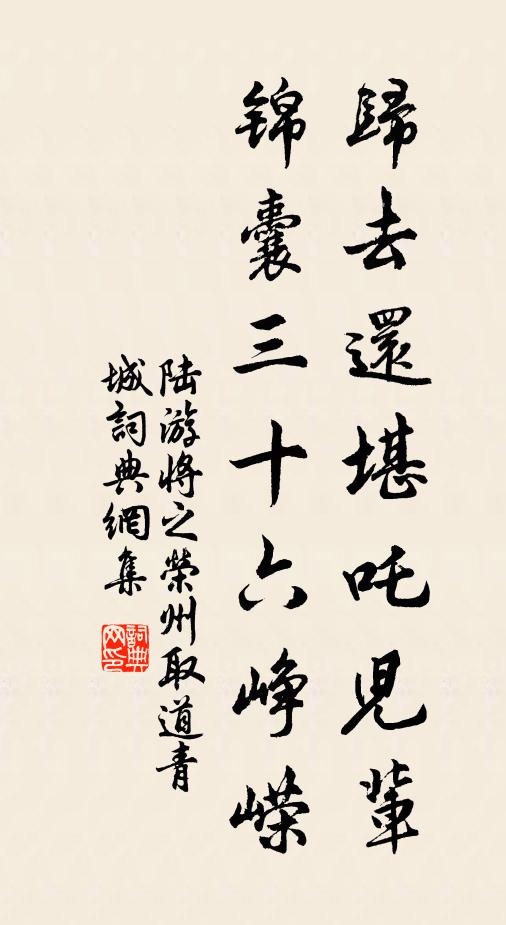 歸去還堪吒兒輩
錦囊三十六崢嶸
陆游將之榮州取道青
城詞典網集
詞典
网印